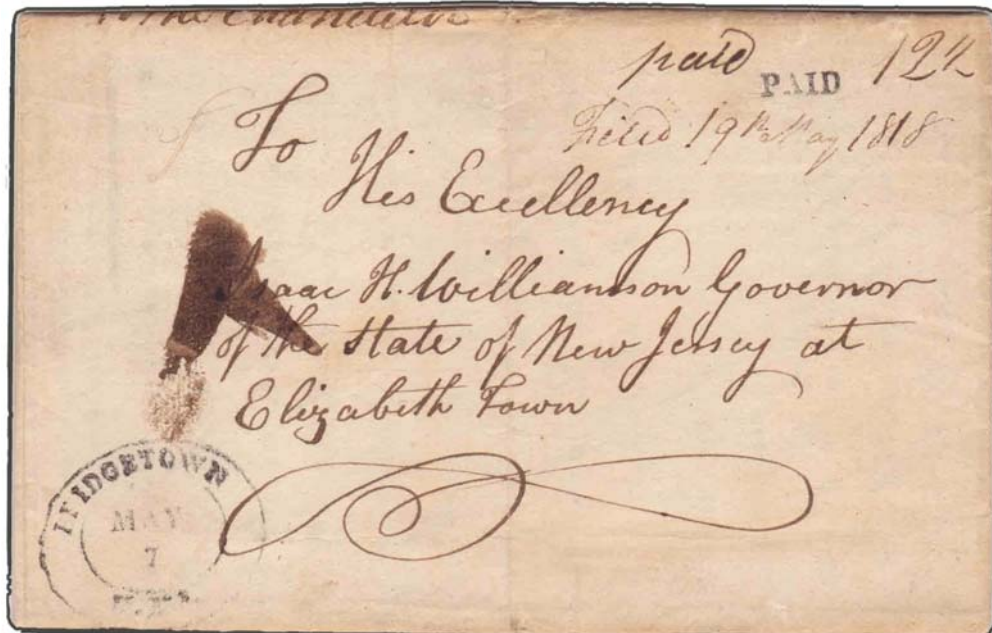 To the Chancellor
paid PAID 12½
Filed 19th May 1818
To
His Excellency
Isaac H. Williamson Governor
of the State of New Jersey at
Elizabeth Town
BRIDGETOWN
MAY
7
N.J.